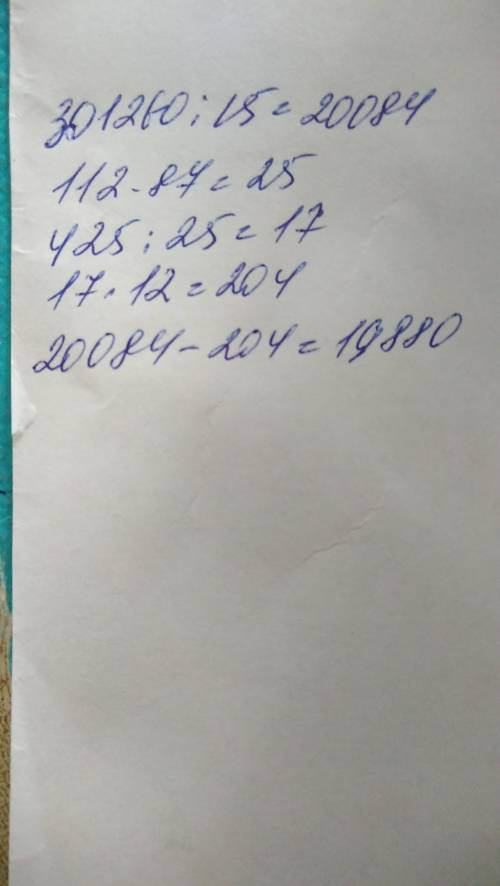 301260 : 15 = 20084
112 - 87 = 25
425 : 25 = 17
17 · 12 = 204
20084 - 204 = 19880